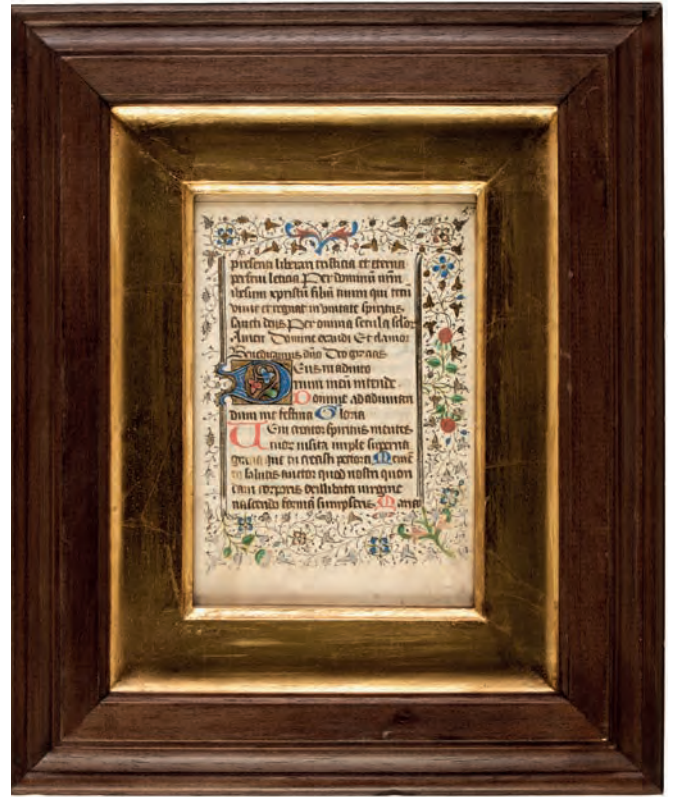 presenti liberari tristicia et eterna
perfrui leticia Per dominū nr̄m
ihesum xpristū filiū tuum qui tecū
viuit et regnat in vnitate spiritus
sancti deus Per omnia secula sclor̄
Amen Domine exaudi Et clamor
Benedicamus dn̄o Deo gracias
Deus in adiuto
rium meū intende
Domine ad adiuuan
dum me festina Gloria
Veni creator spiritus mentes
tuor visita imple superna
gracia que tu creasti pectora Memē
to salutis auctor quod nostri quon
dam corporis ex illibata virgine
nascendo formā sumpseris Maria